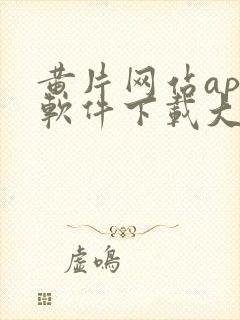 黄片网佔ap
軟件下載大
虛鳴